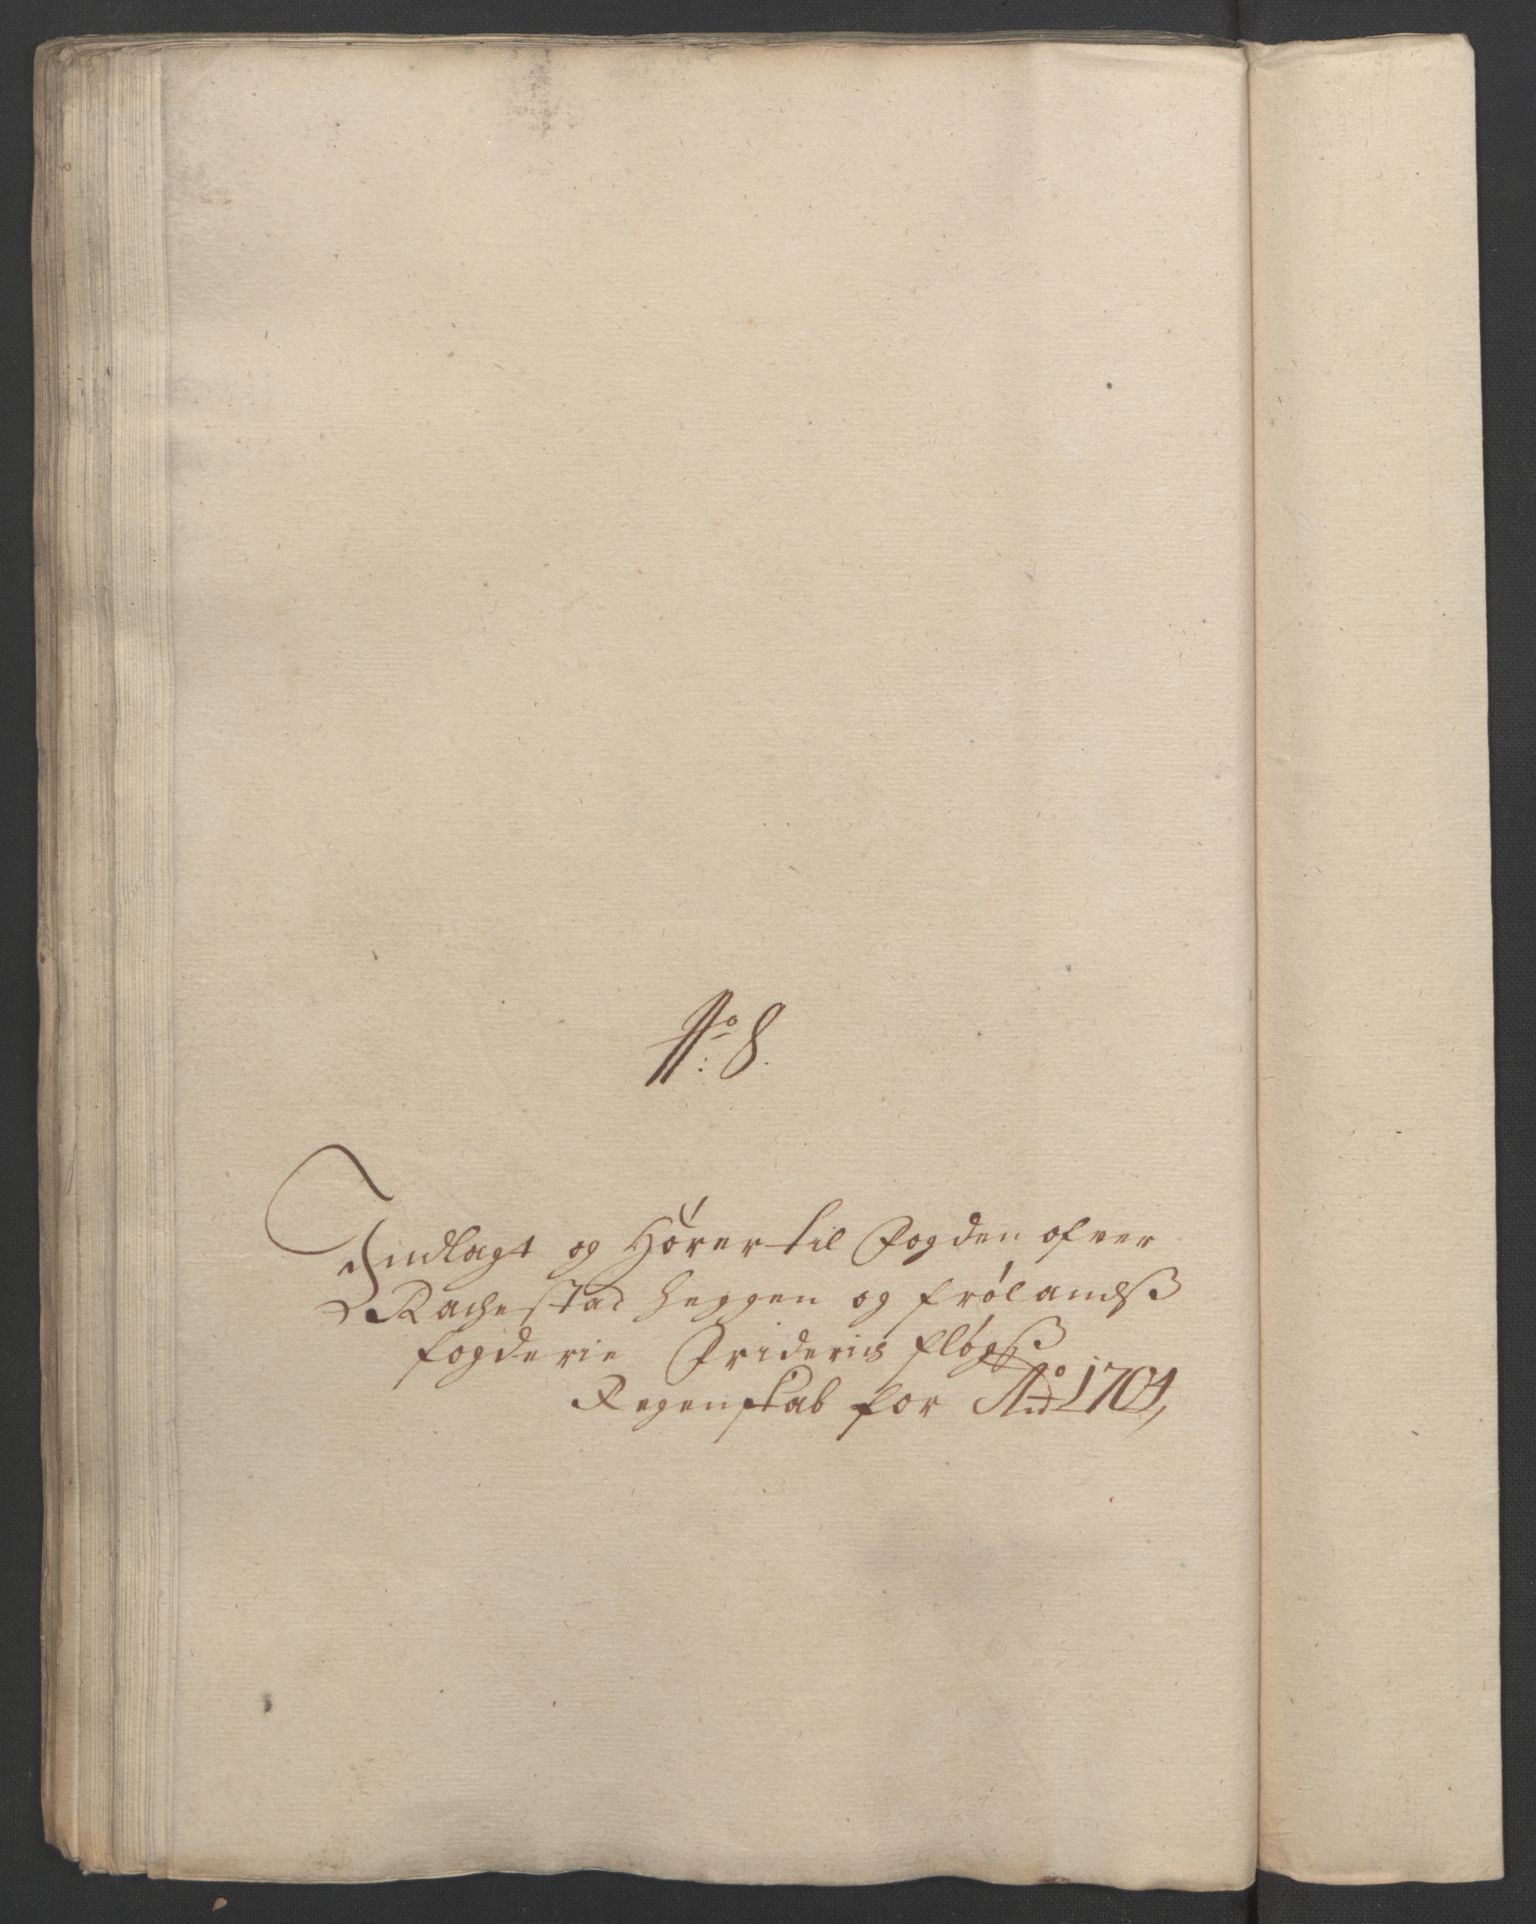 No: 8.
Indlagt og Hörer til Fogden ofver
Rachestad Heggen og Frölandsß
fogderie Friderics Flögß
Regenskab for Ao 1704,